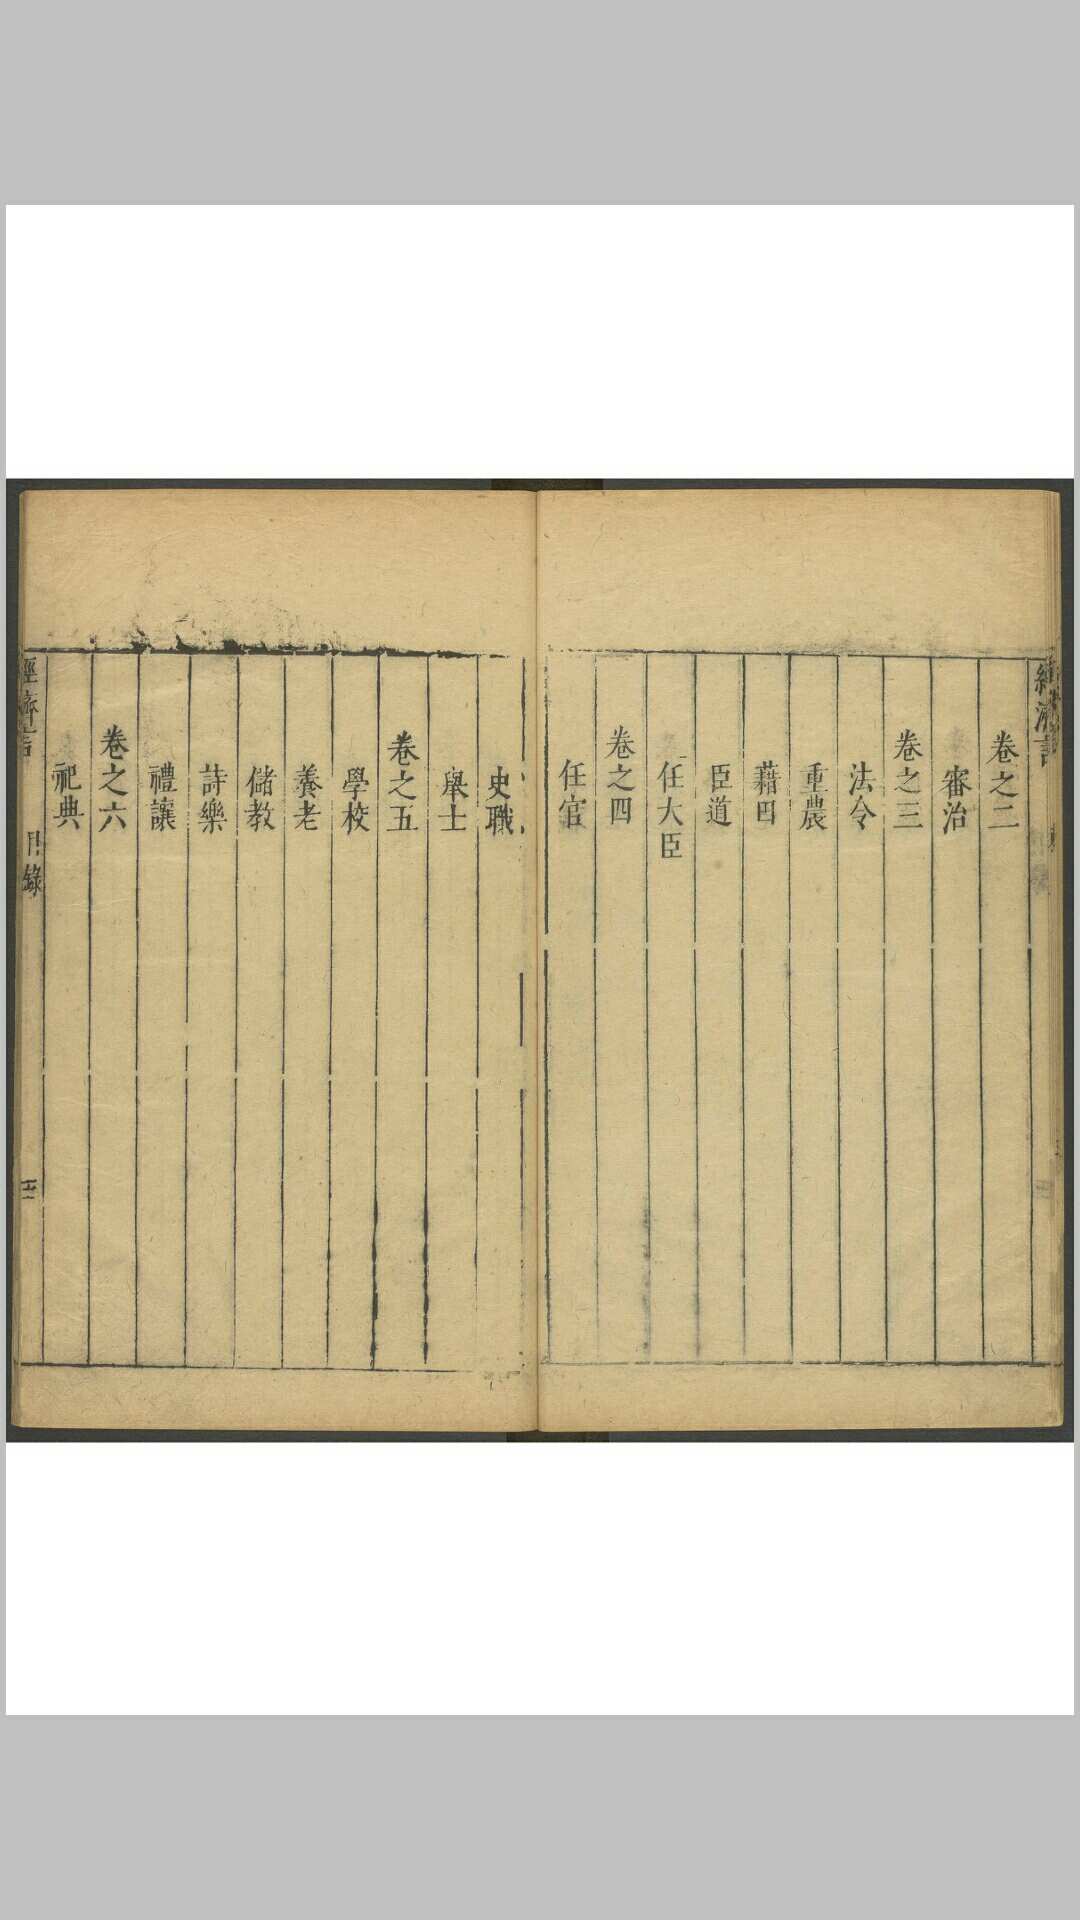 卷之二
審治
卷之三
法令
重農
藉田
臣道
任大臣
卷之四
任官
史職
舉士
卷之五
學校
養老
儲教
詩樂
禮讓
卷之六
祀典
經濟言
目錄